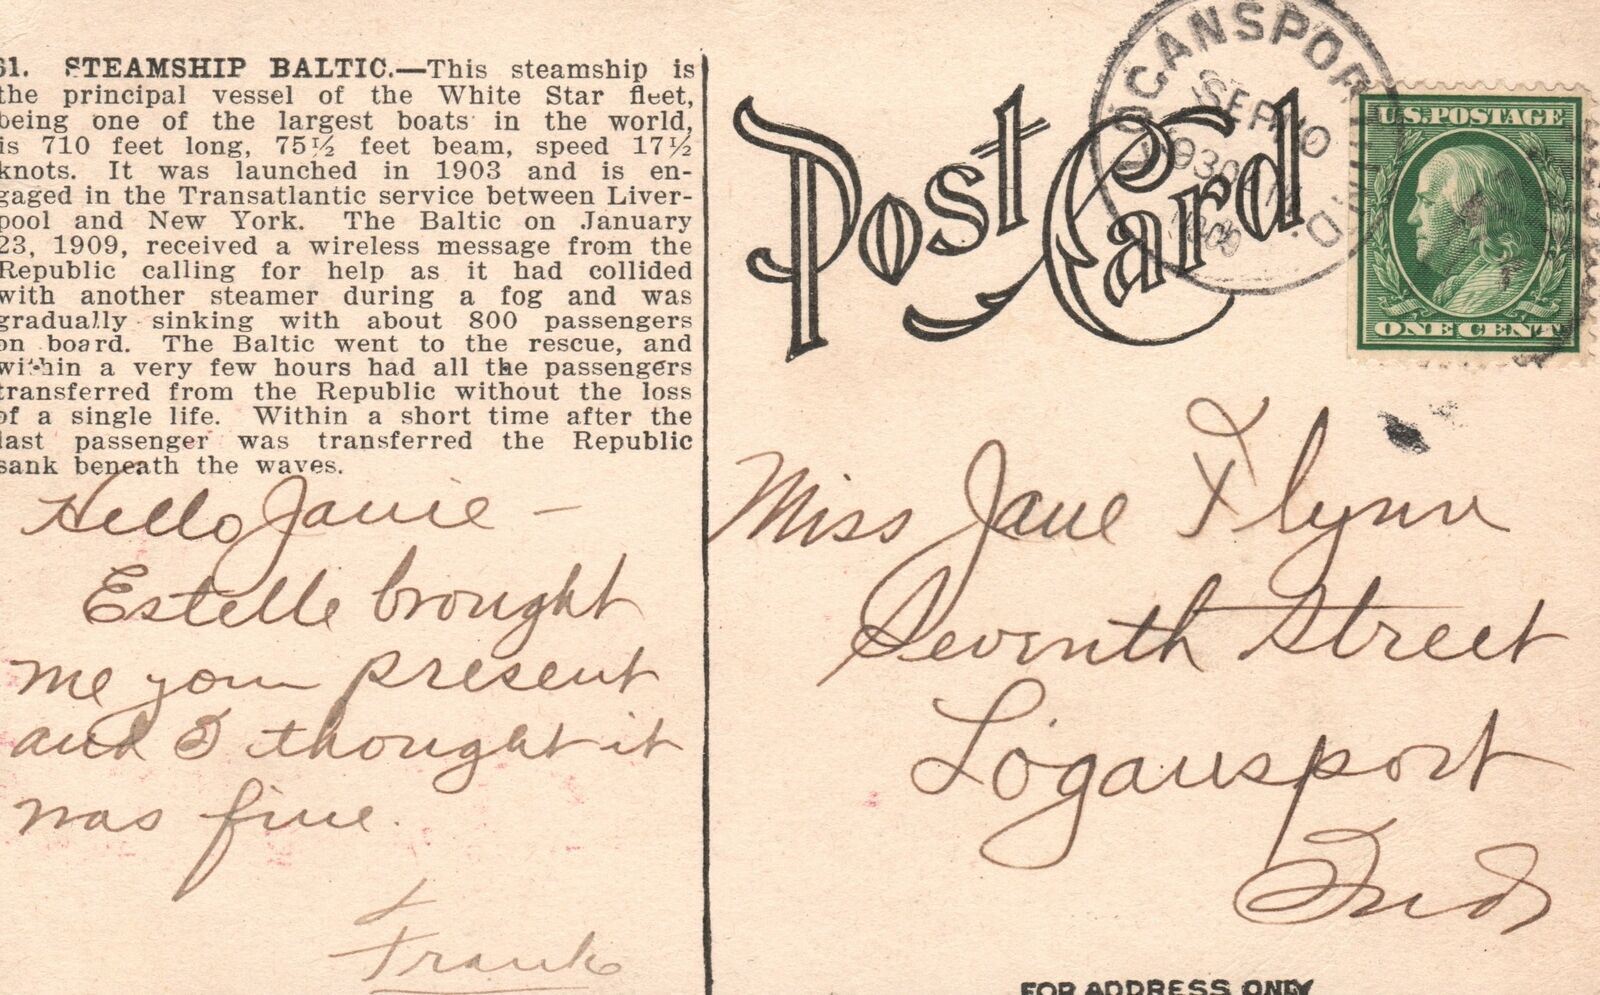 61. STEAMSHIP BALTIC.—This steamship is
the principal vessel of the White Star fleet,
being one of the largest boats in the world,
is 710 feet long, 75½ feet beam, speed 17½
knots. It was launched in 1903 and is en-
gaged in the Transatlantic service between Liver-
pool and New York. The Baltic on January
23, 1909, received a wireless message from the
Republic calling for help as it had collided
with another steamer during a fog and was
gradually sinking with about 800 passengers
on board. The Baltic went to the rescue, and
within a very few hours had all the passengers
transferred from the Republic without the loss
of a single life. Within a short time after the
last passenger was transferred the Republic
sank beneath the waves.
Hello Janie —
Estelle brought
me your present
and I thought it
was fine.
Frank
Post Card
LOGANSPORT, IND.
SEP 10
930
U.S. POSTAGE
ONE CENT
Miss Jane Flynn
Seventh Street
Logansport
Ind
FOR ADDRESS ONLY